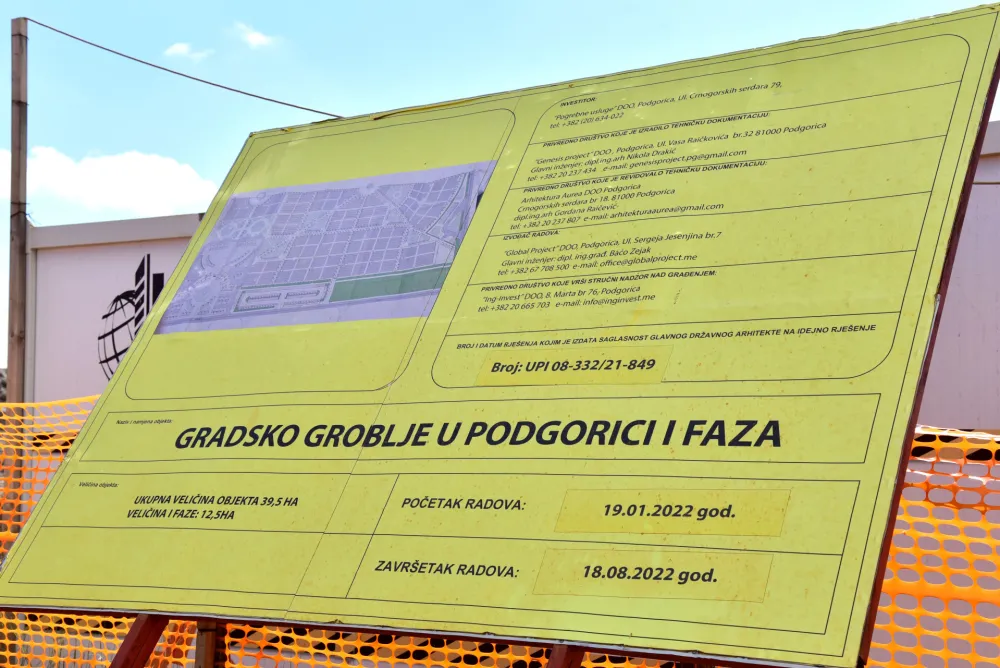 INVESTITOR:
"Pogrebne usluge" DOO, Podgorica, Ul. Crnogorskih serdara 79,
tel: +382 (20) 634-022
PRIVREDNO DRUŠTVO KOJE JE IZRADILO TEHNIČKU DOKUMENTACIJU:
"Genesis project" DOO, Podgorica, Ul. Vasa Raičkovica br.32 81000 Podgorica
Glavni inženjer: dipl.ing.arh Nikola Drakić
tel: +382 20 237 434 e-mail: genesisproject.pg@gmail.com
PRIVREDNO DRUŠTVO KOJE JE REVIDOVALO TEHNIČKU DOKUMENTACIJU:
Arhitektura Aurea DOO Podgorica
Crnogorskih serdara br 18, 81000 Podgorica
dipl.ing.arh Gordana Raičević
tel: +382 20 237 807 e-mail: arhitekturaaurea@gmail.com
IZVOĐAČ RADOVA:
"Global Project" DOO, Podgorica, Ul. Sergeja Jesenjina br.7
Glavni inženjer: dipl. ing.građ. Baćo Zejak
tel: +382 67 708 500 e-mail: office@globalproject.me
PRIVREDNO DRUŠTVO KOJE VRŠI STRUČNI NADZOR NAD GRAĐENJEM:
"Ing-Invest" DOO, 8. Marta br 76, Podgorica
tel: +382 20 665 703 e-mail: info@inginvest.me
BROJ I DATUM RJEŠENJA KOJIM JE IZDATA SAGLASNOST GLAVNOG DRŽAVNOG ARHITEKTE NA IDEJNO RJEŠENJE
Broj: UPI 08-332/21-849
Naziv i namjena objekta:
GRADSKO GROBLJE U PODGORICI I FAZA
Veličina objekta:
UKUPNA VELIČINA OBJEKTA 39,5 HA
VELIČINA I FAZE: 12,5HA
POČETAK RADOVA: 19.01.2022 god.
ZAVRŠETAK RADOVA: 18.08.2022 god.